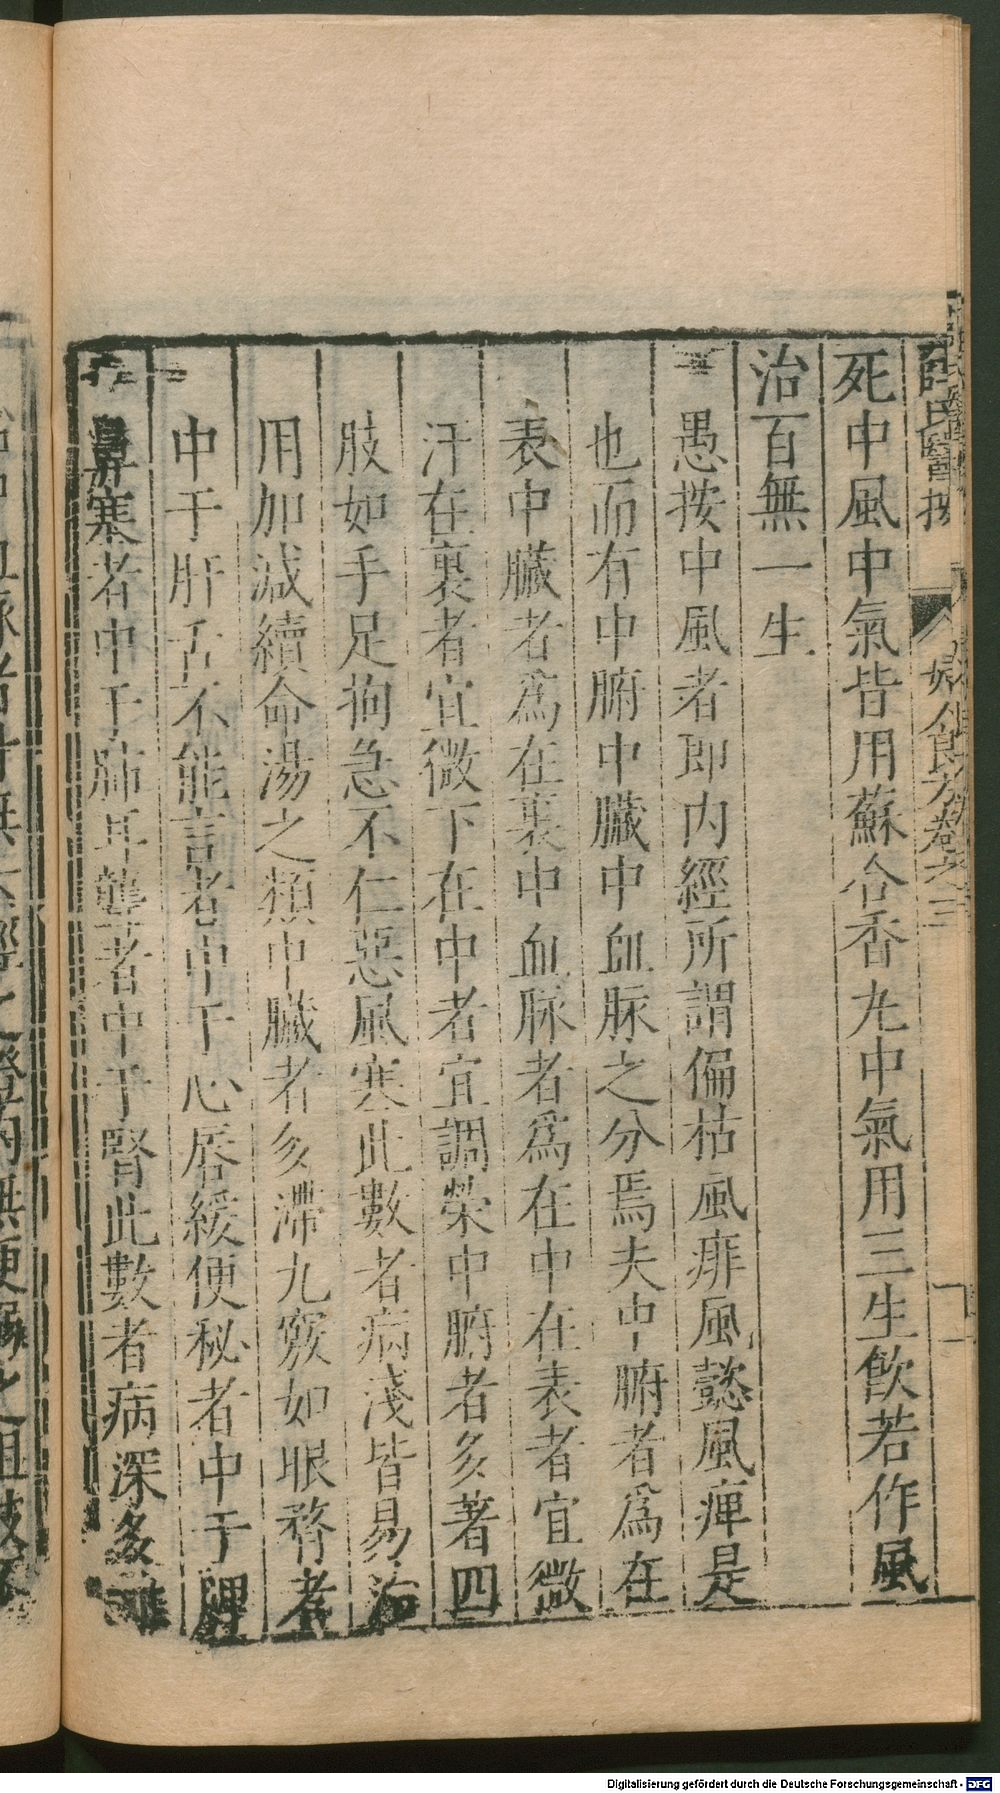 薛氏醫按 婦人良方卷之三
死中風中氣皆用蘇合香丸中氣用三生飲若作風
治百無一生
愚按中風者即内經所謂偏枯風痱風懿風痺是
也而有中腑中臟中血脉之分焉夫中腑者爲在
表中臟者爲在裏中血脉者爲在中在表者宜微
汗在裏者宜微下在中者宜調榮中腑者多著四
肢如手足拘急不仁惡風寒此數者病淺皆易治
用加減續命湯之類中臟者多滯九竅如眼瞀者
中于肝舌不能言者中于心唇緩便秘者中于脾
鼻塞者中于肺耳聾者中于腎此數者病深多難
Digitalisierung gefördert durch die Deutsche Forschungsgemeinschaft - DFG